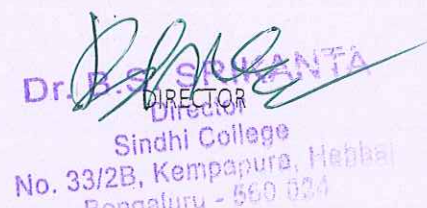 Dr. B.S. SRIKANTA
DIRECTOR
Director
Sindhi College
No. 33/2B, Kempapura, Hebbal
Bengaluru - 560 024